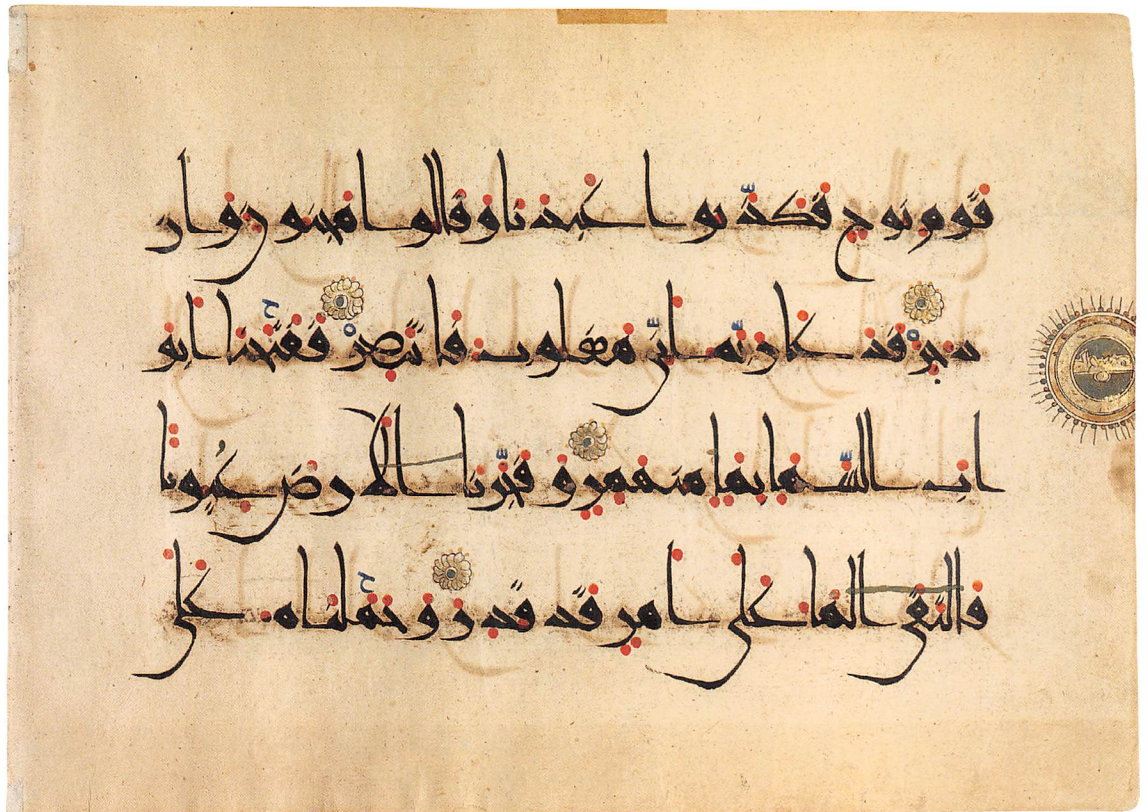 قَوْمُ نُوحٍ فَكَذَّبُوا عَبْدَنَا وَقَالُوا مَجْنُونٌ وَازْ
دُجِرَ فَدَعَا رَبَّهُ أَنِّي مَغْلُوبٌ فَانْتَصِرْ فَفَتَحْنَا أَبْوَ
ابَ السَّمَاءِ بِمَاءٍ مُنْهَمِرٍ وَفَجَّرْنَا الْأَرْضَ عُيُونًا
فَالْتَقَى الْمَاءُ عَلَى أَمْرٍ قَدْ قُدِرَ وَحَمَلْنَاهُ عَلَى